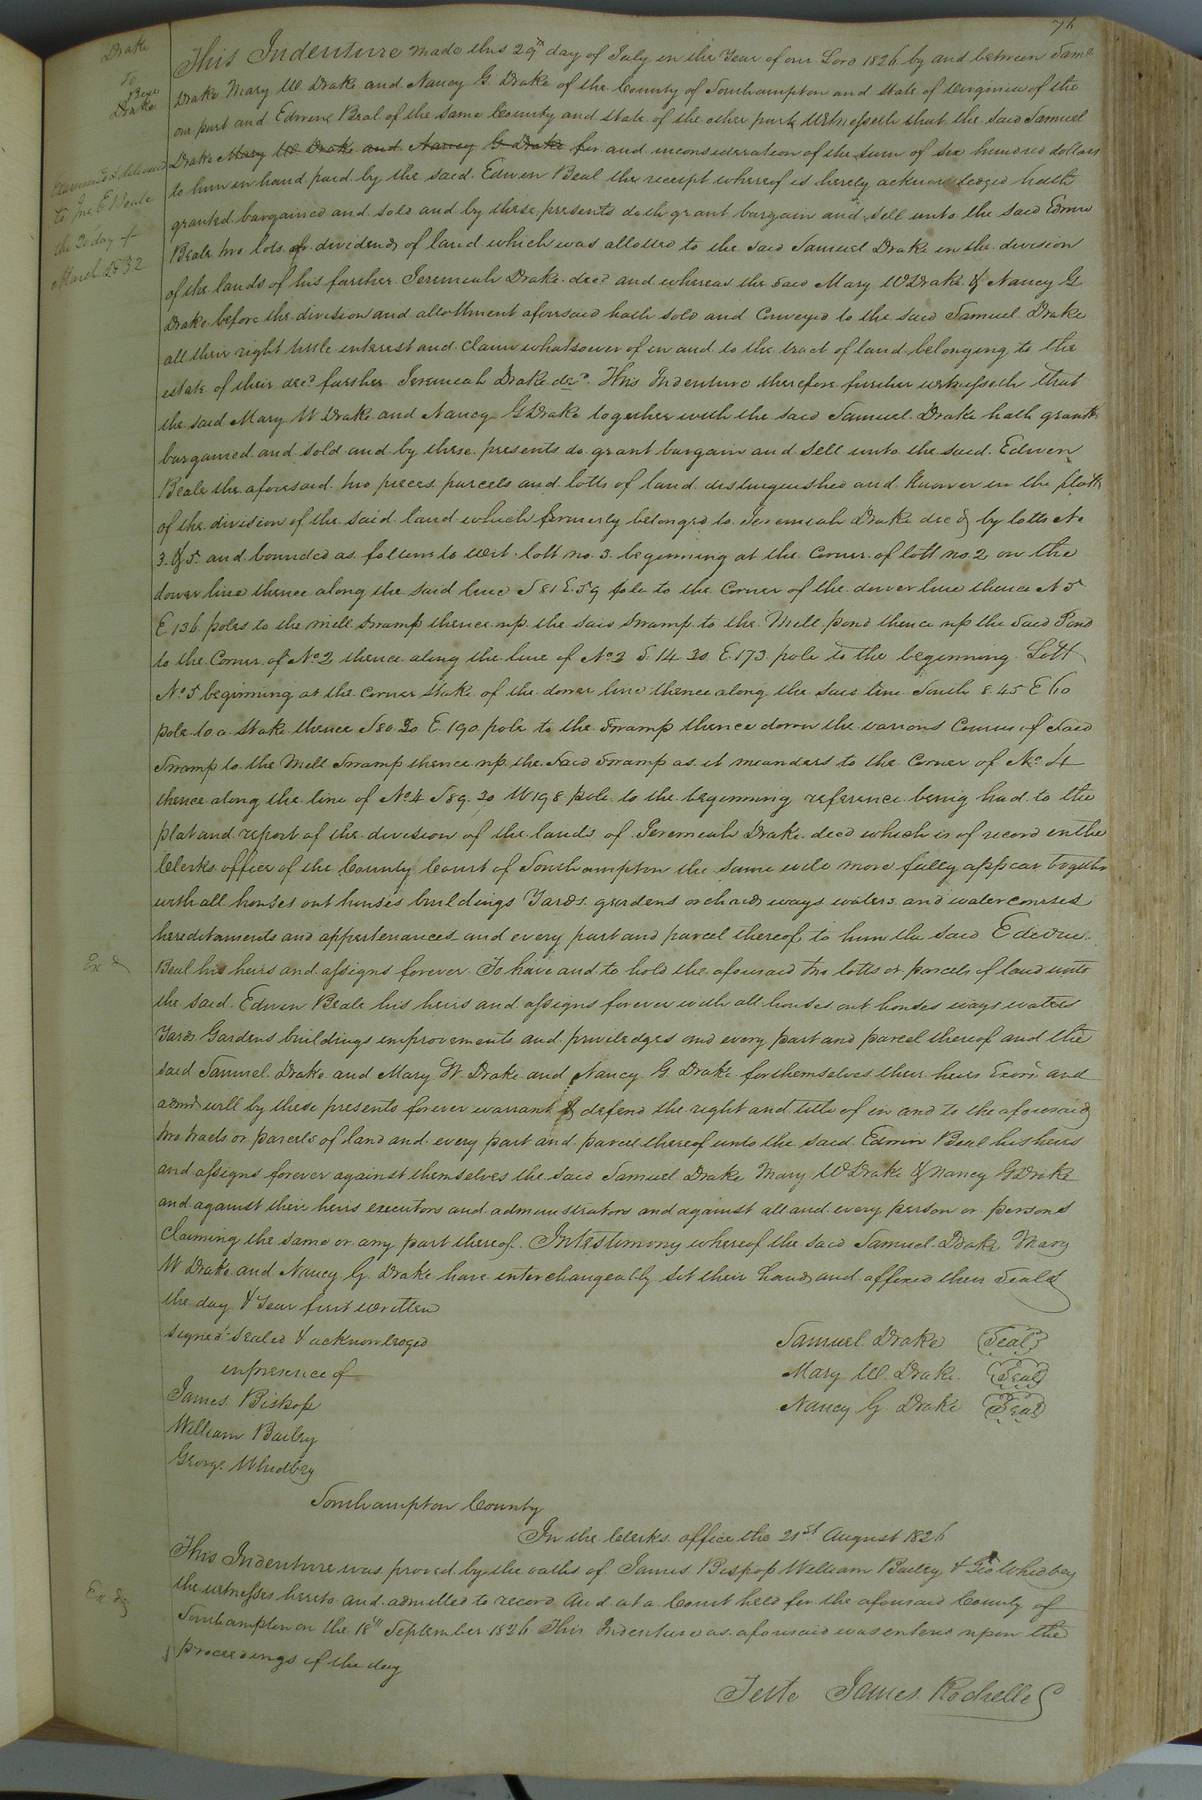 76
Drake
To
Beal
Drake
Examined & delivered
to Jno E Beale
the 20 day of
March 1832
This Indenture made this 29th day of July in the Year of our Lord 1826 by and between Saml
Drake Mary W Drake and Nancy G Drake of the County of Southampton and State of Virginia of the
one part and Edwin Beal of the same County and State of the other part Witnesseth that the said Samuel
Drake Mary W Drake and Nancy G Drake for and inconsideration of the sum of six hundred dollars
to him in hand paid by the said Edwin Beal the receipt whereof is hereby acknowledged hath
granted bargained and sold and by these presents doth grant bargain and sell unto the said Edwin
Beale two lots or dividends of land which was allotted to the said Samuel Drake in the division
of the lands of his farther Jeremiah Drake decd and whereas the said Mary W Drake & Nancy G
Drake before the division and allottment aforesaid hath sold and Conveyed to the said Samuel Drake
all their right title interest and claim whatsoever of in and to the tract of land belonging to the
estate of their decd farther Jeremiah Drake decd. This Indenture therefore further witnesseth that
the said Mary W Drake and Nancy G Drake together with the said Samuel Drake hath grantd
bargained and sold and by these presents do grant bargain and sell unto the said Edwin
Beale the aforesaid two pieces parcels and lotts of land distinguished and known in the platt
of the division of the said land which formerly belonged to Jeremiah Drake decd by lotts No
3 & 5 and bounded as follows to wit lott no. 3 beginning at the Corner of lott no. 2 on the
dower line thence along the said line S 81 E 59 pole to the Corner of the dower line thence N 5
E 136 poles to the mill swamp thence up the said swamp to the Mill pond thence up the said Pond
to the Corner of No 2 thence along the line of No 2 S. 14 30 E 173 pole to the beginning. Lott
No 5 beginning at the Corner Stake of the dower line thence along the said line South 8.45 E 60
pole to a Stake thence S 80 30 E 190 pole to the Swamp thence down the various Courses of said
Swamp to the Mill Swamp thence up the said Swamp as it meanders to the Corner of No 4
thence along the line of No 4 S 89. 30 W 198 pole to the beginning reference being had to the
plat and report of the division of the lands of Jeremiah Drake decd which is of record in the
Clerks office of the County Court of Southampton the same will more fully appear together
with all houses out houses buildings Yards gardens orchards ways waters and watercourses
hereditaments and appertenances and every part and parcel thereof to him the said Edwin
Exd
Beal his heirs and assigns forever To have and to hold the aforesaid two lotts or parcels of land unto
the said Edwin Beale his heirs and assigns forever with all houses out houses ways waters
Yards Gardens buildings improvements and priviledges and every part and parcel thereof and the
said Samuel Drake and Mary W Drake and Nancy G Drake forthemselves their heirs Exors and
admrs will by these presents forever warrant & defend the right and title of in and to the aforesaid
two tracts or parcels of land and every part and parcel thereof unto the said Edwin Beal his heirs
and assigns forever against themselves the said Samuel Drake Mary W Drake & Nancy G Drake
and against their heirs executors and administrators and against all and every person or persons
Claiming the same or any part thereof. Intestimony whereof the said Samuel Drake Mary
W Drake and Nancy G. Drake have interchangeably set their hands and affixed their Seals
the day & Year first written
signed Sealed & acknowledged
inpresence of
James Bishop
William Bailey
George Whedbey
Samuel Drake Seal
Mary W Drake Seal
Nancy G Drake Seal
Southampton County
In the Clerks office the 21st August 1826
This Indenture was proved by the oaths of James Bishop William Bailey & Geo Whedbey
Exd
the witnesses hereto and admitted to record And at a Court held for the aforesaid County of
Southampton on the 18th September 1826 This Indenture as aforesaid was entered upon the
proceedings of the day
Teste James Rochelle